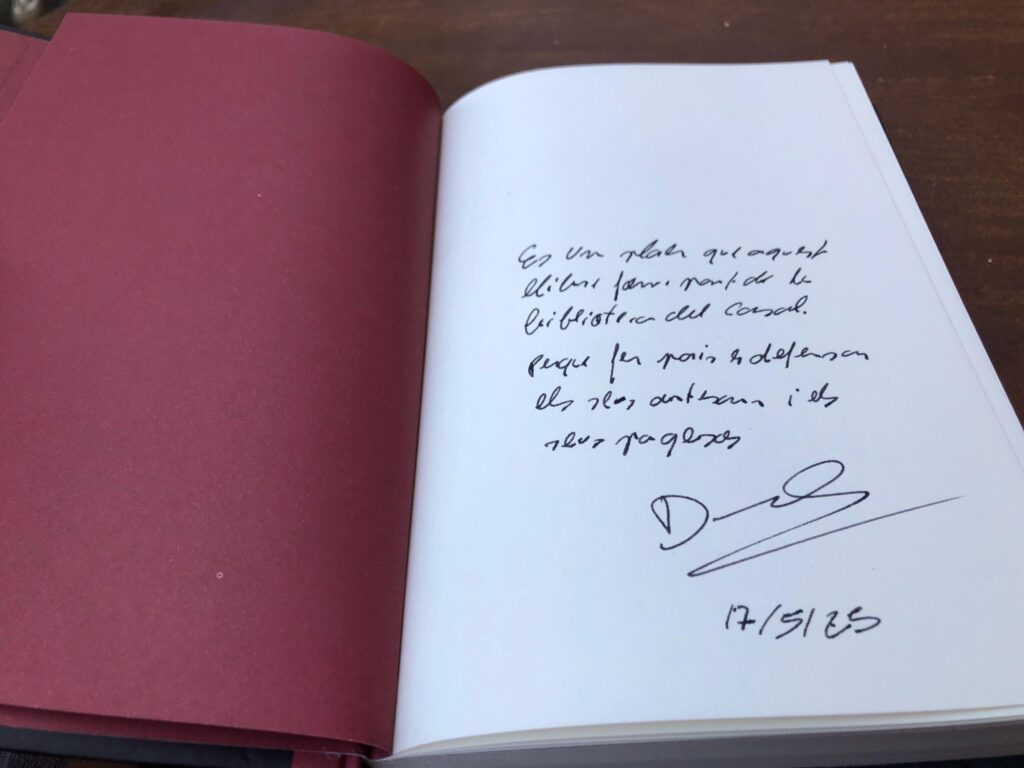 Es un plaer que aquest
llibre formi part de la
biblioteca del Casal.
perque fer pais es defensar
els seus artesans i els
seus pagesos
17/5/25